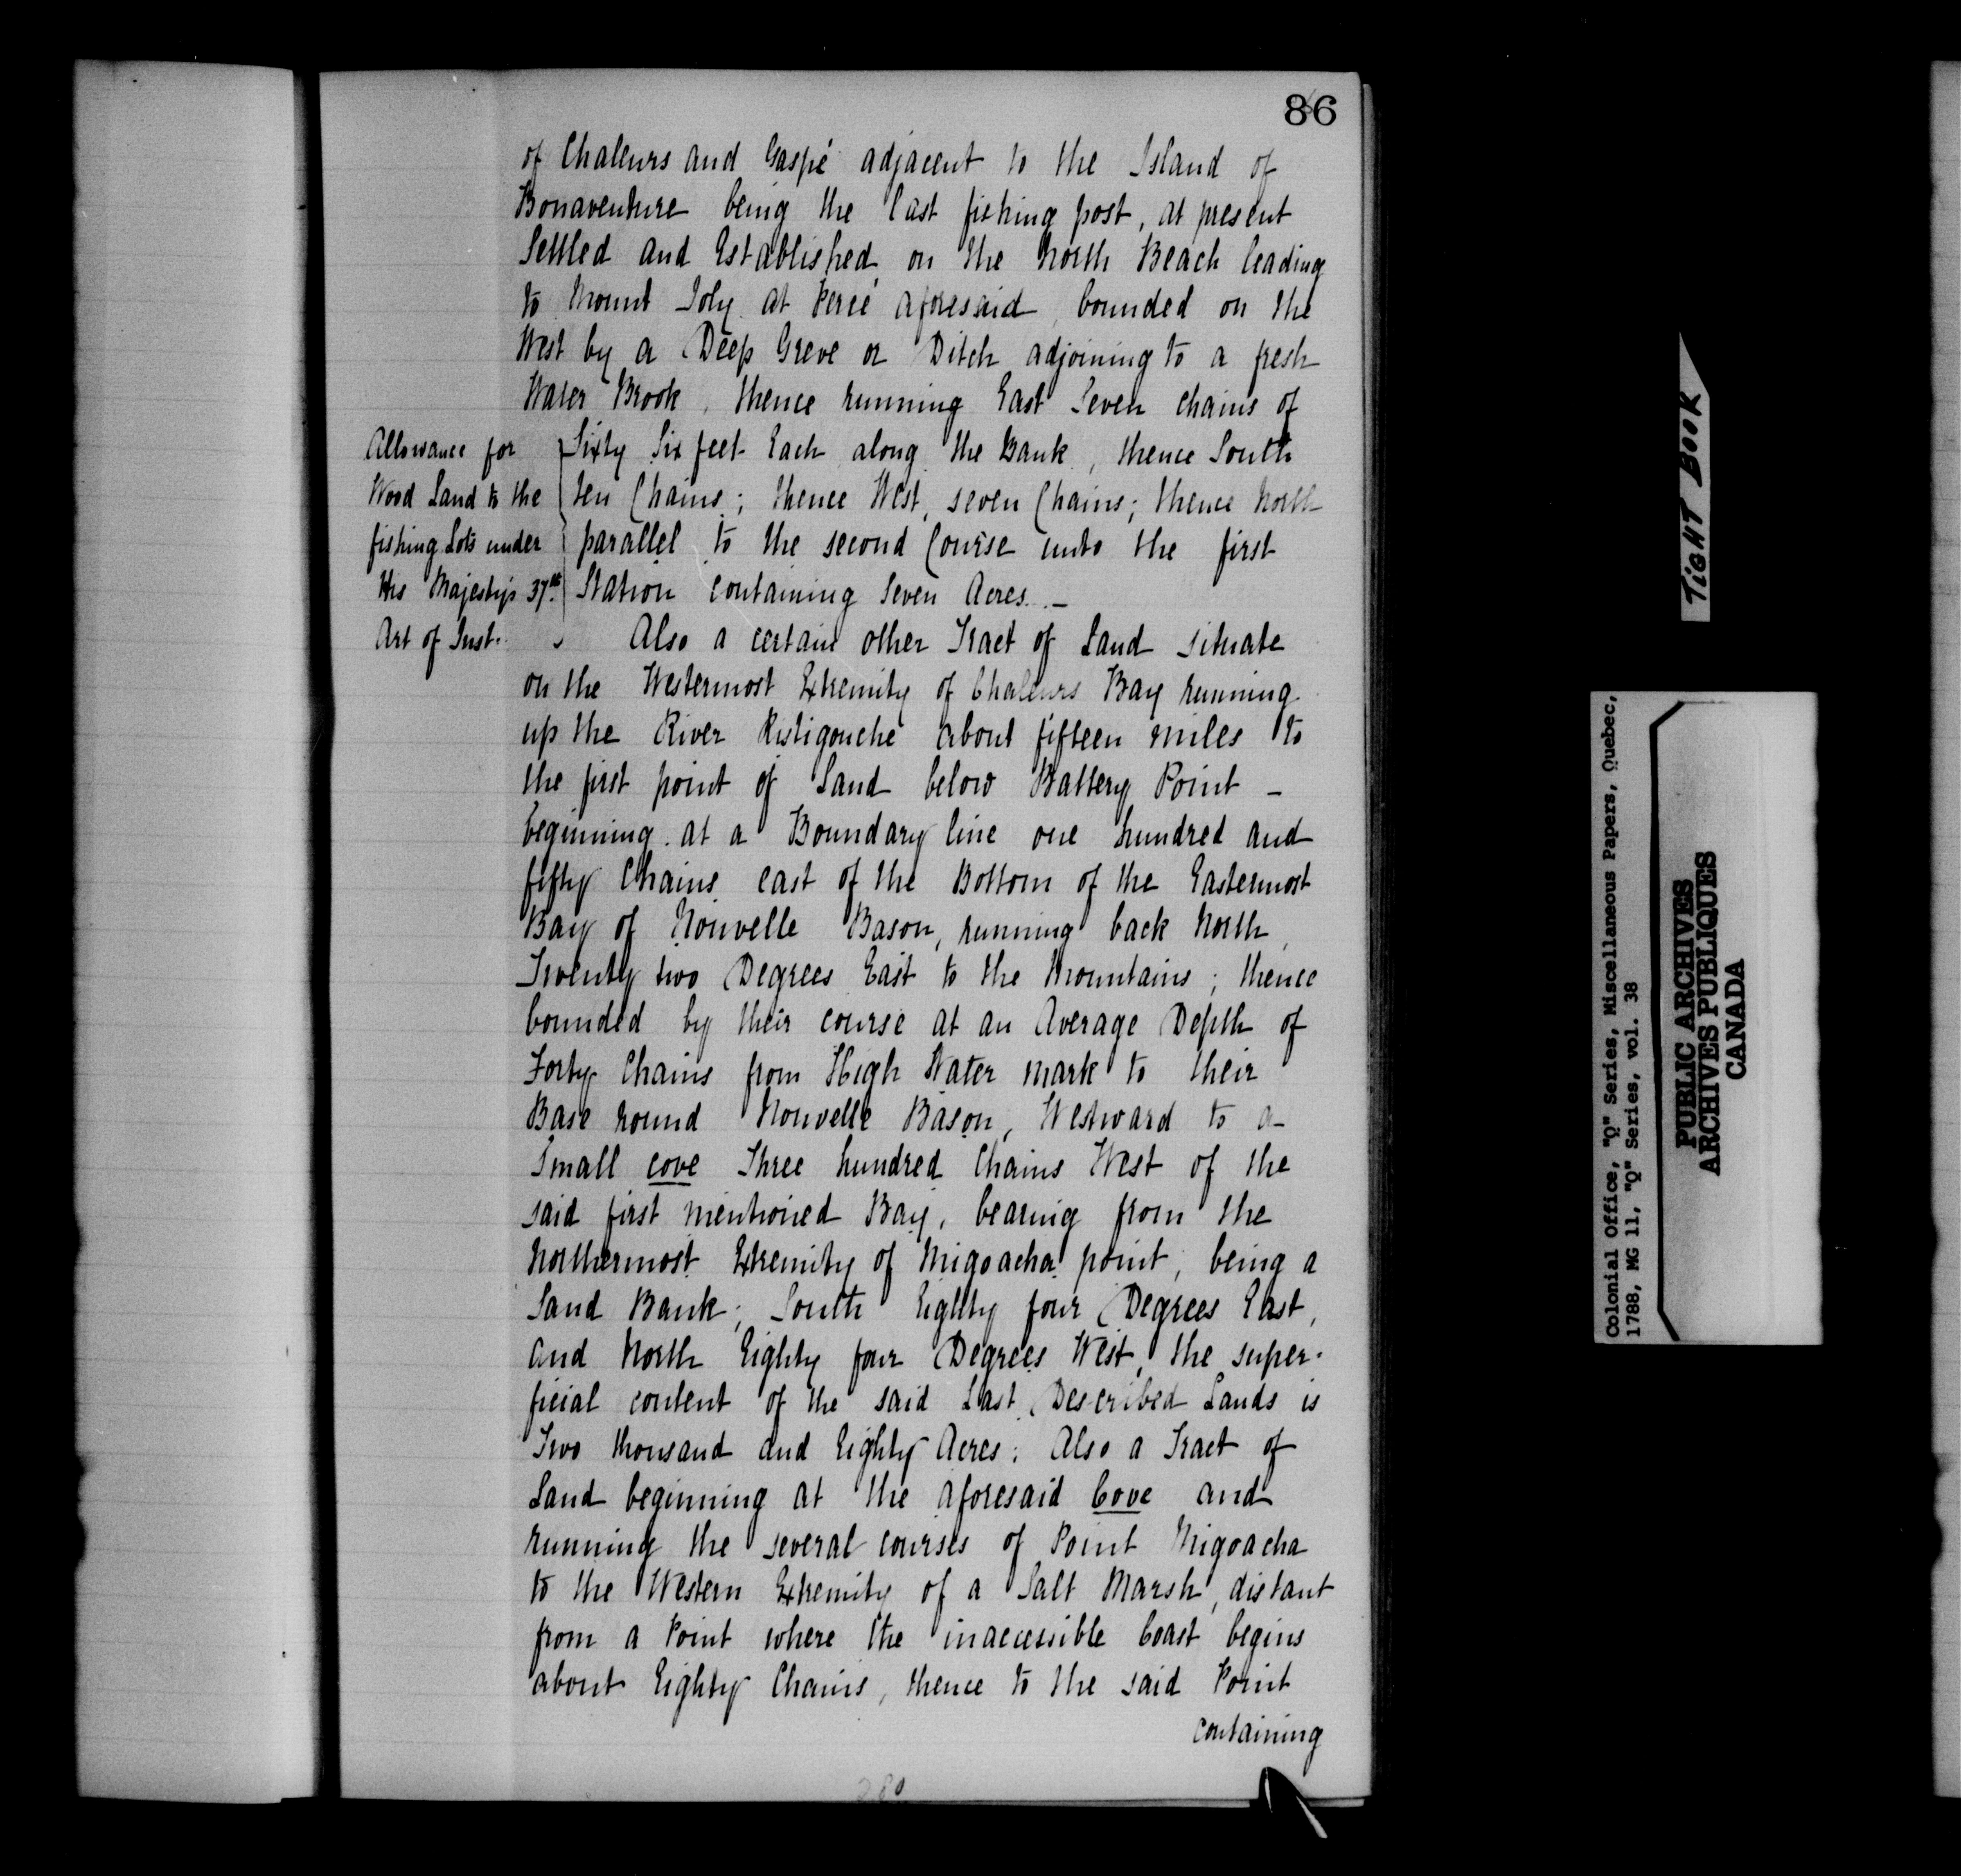 86
of Chaleurs and Gaspé adjacent to the Island of
Bonaventure being the last fishing post, at present
Settled and Established on the North Beach leading
to Mount Joly at Percé aforesaid, bounded on the
West by a Deep Greve or Ditch adjoining to a fresh
Water Brook, thence running East Seven chains of
Sixty Six feet Each along the Bank, thence South
ten Chains; thence West, seven Chains; thence North
parallel to the second Course unto the first
Station containing Seven Acres. —
Allowance for
Wood Land to the
fishing Lots under
His Majesty's 37th
Art of Inst.
Also a certain other Tract of Land situate
on the Westermost Extremity of Chaleurs Bay running
up the River Ristigouche about fifteen miles to
the first point of Land below Battery Point —
beginning at a Boundary line one hundred and
fifty Chains east of the Bottom of the Eastermost
Bay of Nouvelle Bason, running back North,
Twenty two Degrees East to the Mountains; thence
bounded by their course at an Average Depth of
Forty Chains from High Water mark to their
Base round Nouvelle Bason, Westward to a
Small cove Three hundred Chains West of the
said first mentioned Bay, bearing from the
Northermost Extremity of Migoacha point, being a
Sand Bank; South Eighty four Degrees East,
and North Eighty four Degrees West, the super-
ficial content of the said Last Described Lands is
Two thousand and Eighty Acres: Also a Tract of
Land beginning at the aforesaid Cove and
running the several courses of Point Migoacha
to the Western Extremity of a Salt Marsh, distant
from a Point where the inaccessible Coast begins
about Eighty Chains, thence to the said Point
containing
280
TIGHT BOOK
Colonial Office, "Q" Series, Miscellaneous Papers, Quebec,
1788, MG 11, "Q" Series, vol. 38
PUBLIC ARCHIVES
ARCHIVES PUBLIQUES
CANADA